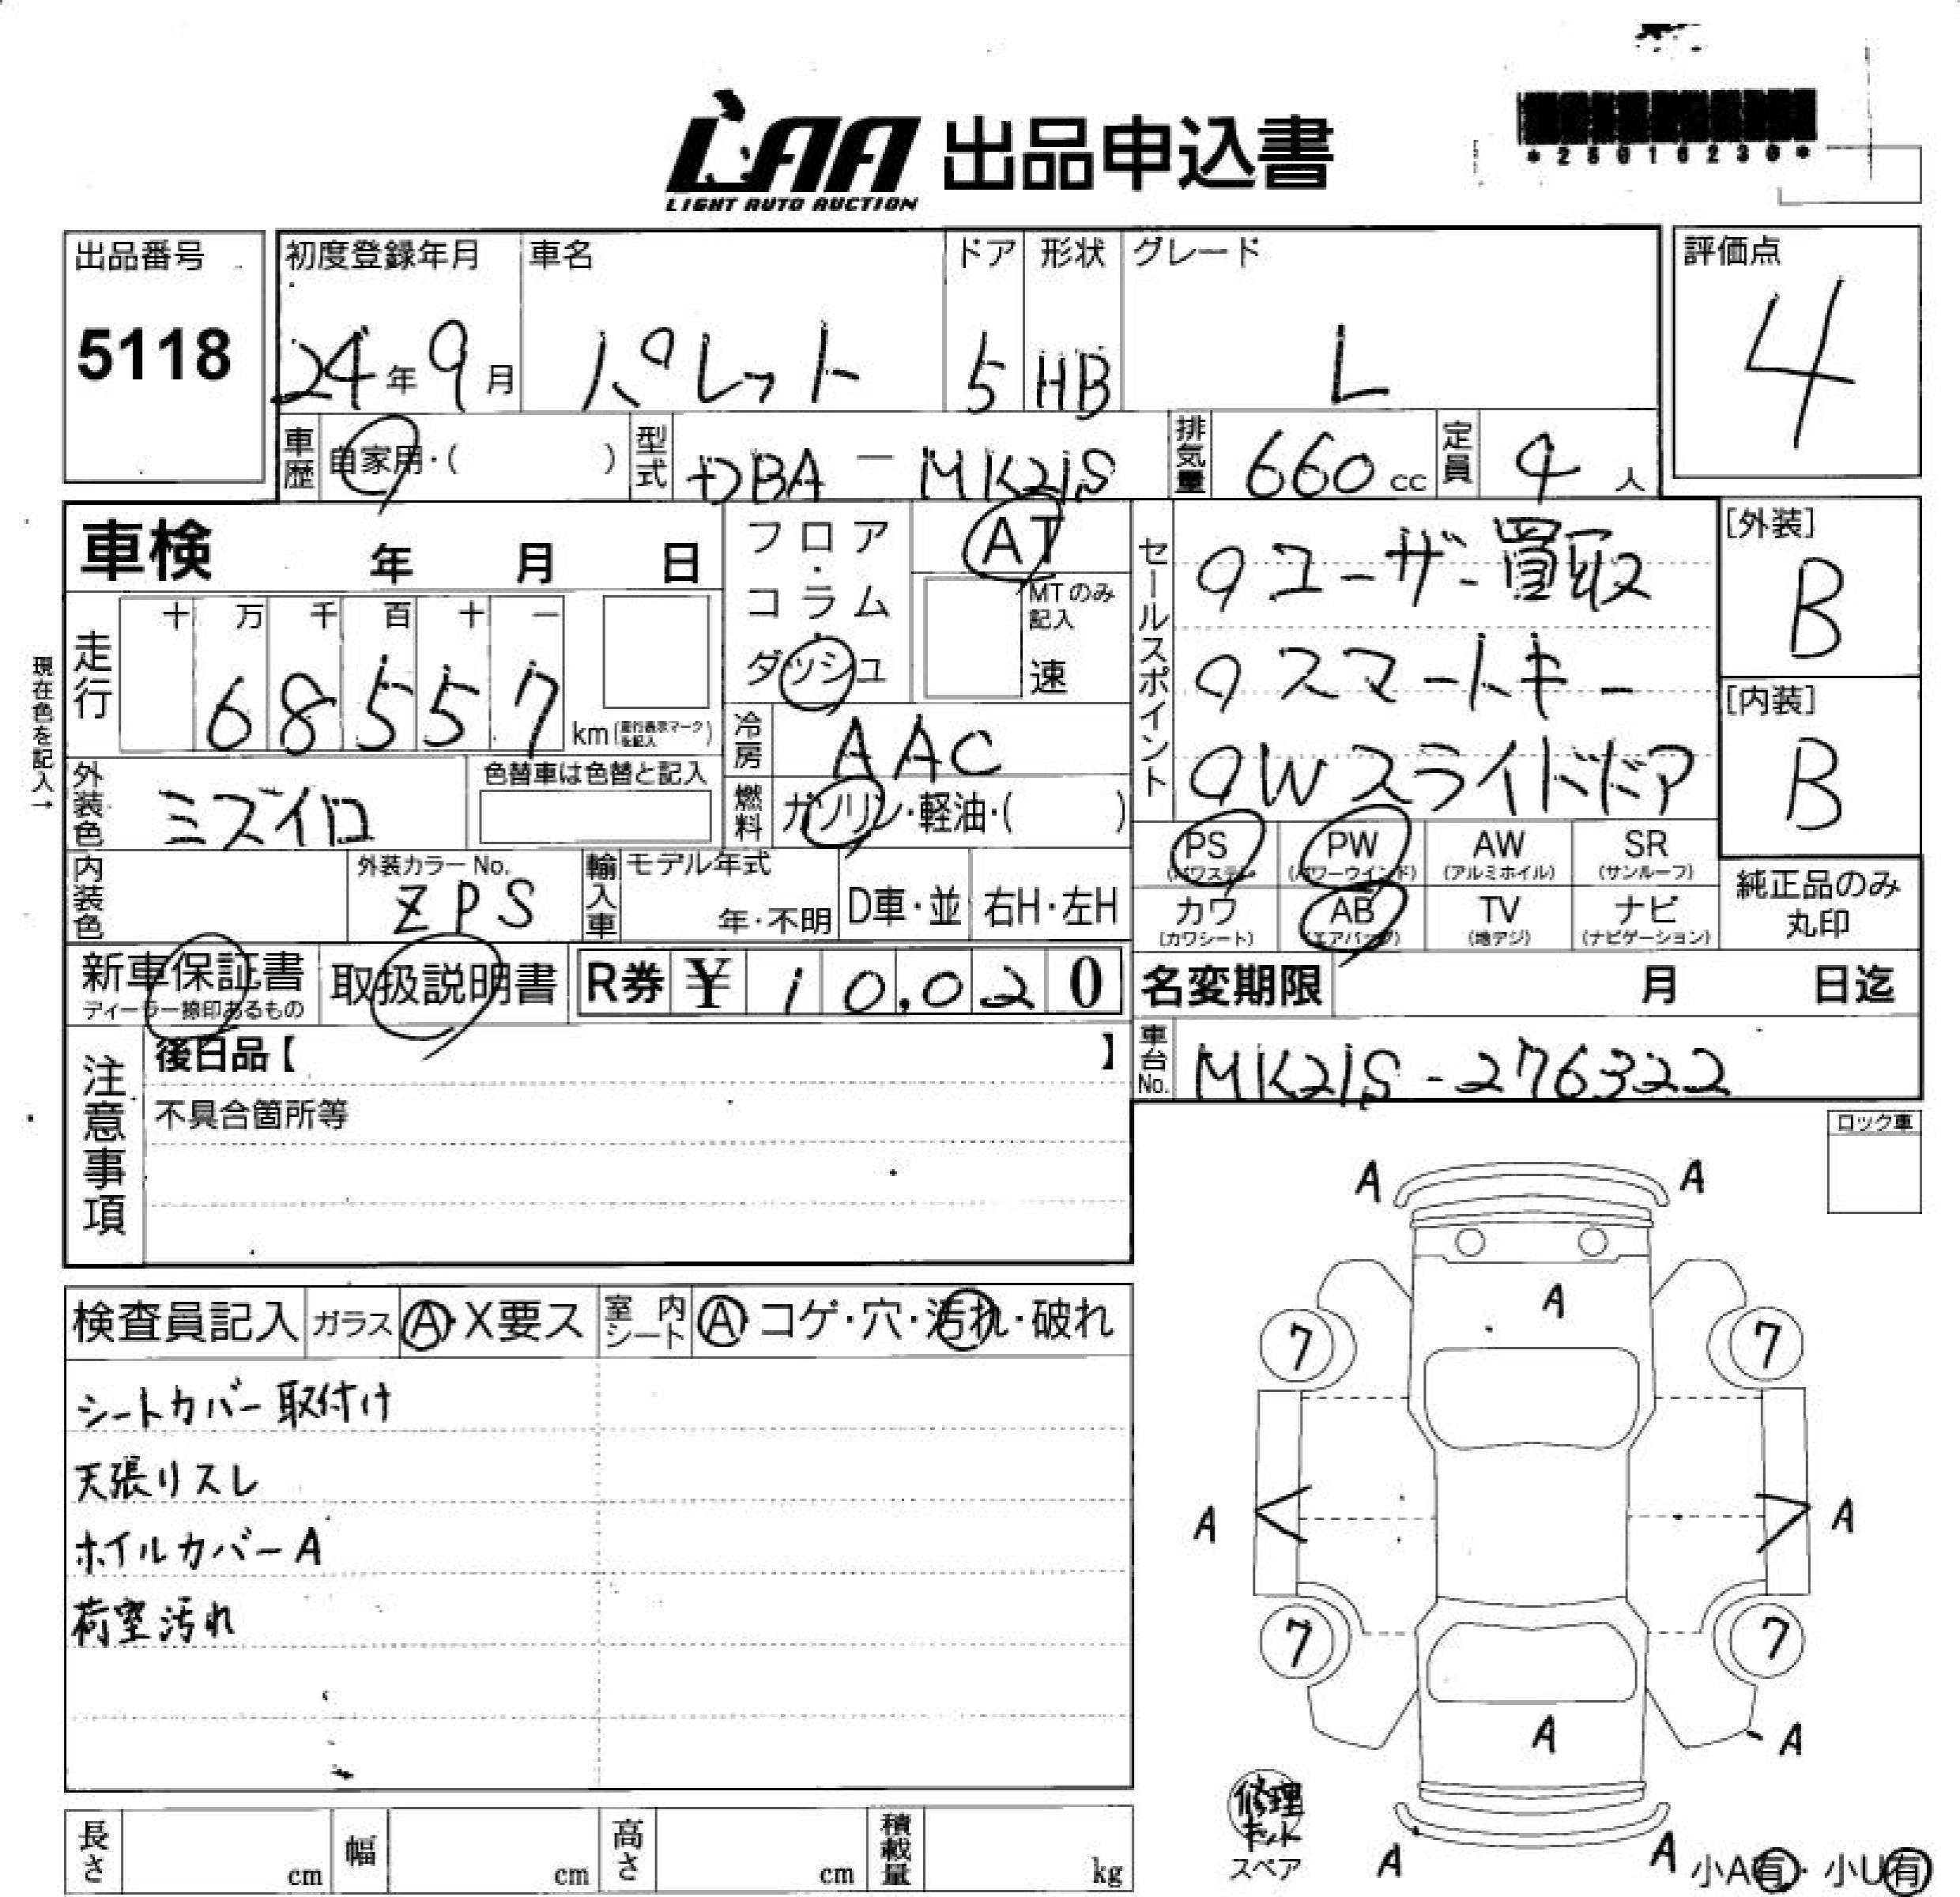 LAA 出品申込書
LIGHT AUTO AUCTION
*28016230*
出品番号
5118
初度登録年月
24年9月
車名
パレット
ドア
5
形状
HB
グレード
L
評価点
4
車歴 自家用・( )
型式 DBA-MK21S
排気量 660cc
定員 4人
車検 年 月 日
フロア・コラム・ダッシュ
AT
MTのみ記入
速
セールスポイント
ユーザー買取
スマートキー
Wスライドドア
[外装]
B
[内装]
B
現在色を記入→
走行
十 万 千 百 十 一
68557
km(走行表示マークを記入)
冷房 AAC
外装色 ミズイロ
色替車は色替と記入
燃料 ガソリン・軽油・( )
PS AW SR
(パワステ) (アルミホイル) (サンルーフ)
PW
(パワーウインド)
カワ AB TV ナビ
(カワシート) (エアバッグ) (地デジ) (ナビゲーション)
純正品のみ丸印
内装色
外装カラーNo.
ZPS
輸入車 モデル年式
年・不明
D車・並
右H・左H
新車保証書
ディーラー捺印あるもの
取扱説明書
R券 ¥ 10,020
名変期限 月 日迄
注意事項
後日品【 】
不具合箇所等
車台No. MK21S-276322
ロック車
検査員記入 ガラス A・X要ス 室内シート A コゲ・穴・汚れ・破れ
シートカバー取付け
天張リスレ
ホイルカバーA
荷室汚れ
A A
A
7 7
A A
7 7
A
A
A A
修理キット
スペア
小A有・小U有
長さ cm 幅 cm 高さ cm 積載量 kg